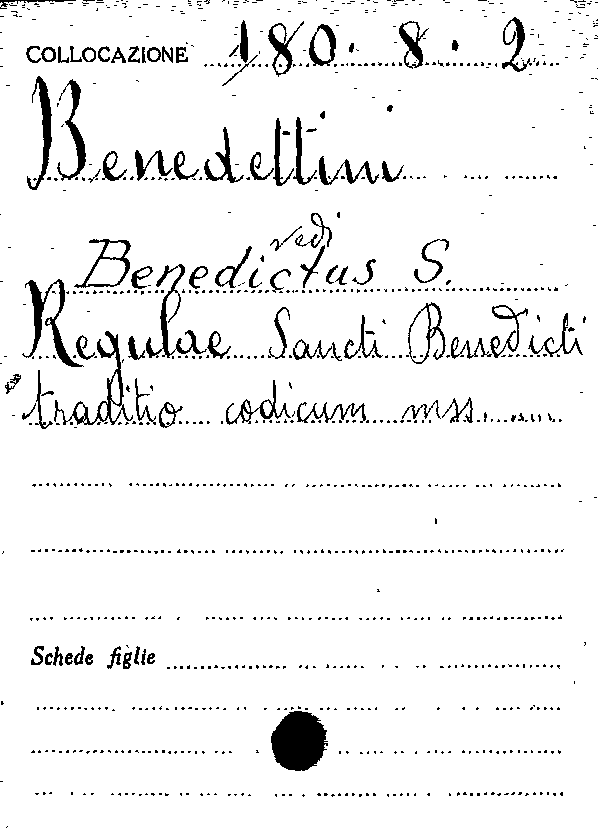 COLLOCAZIONE 180. 8. 2
Benedettini
vedi
Benedictus S.
Regulae Sancti Benedicti
traditio codicum mss. ....
Schede figlie